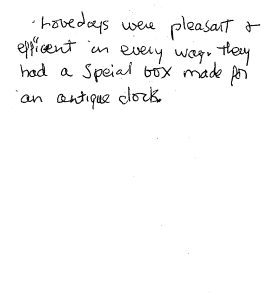 Lovedays were pleasant &
efficent in every way. They
had a Speial box made for
an antique clock.